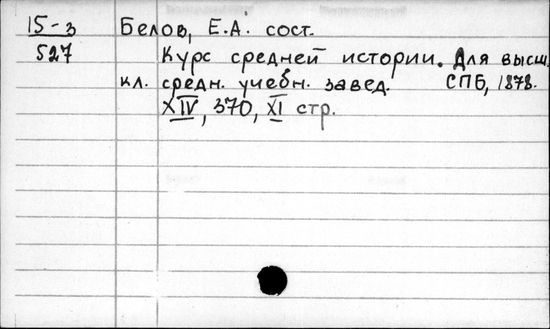 15-3 Белов, Е.А. сост.
527 Курс средней истории. Для высш.
кл. средн. учебн. завед. СПБ, 1878.
XIV, 370, XI стр.